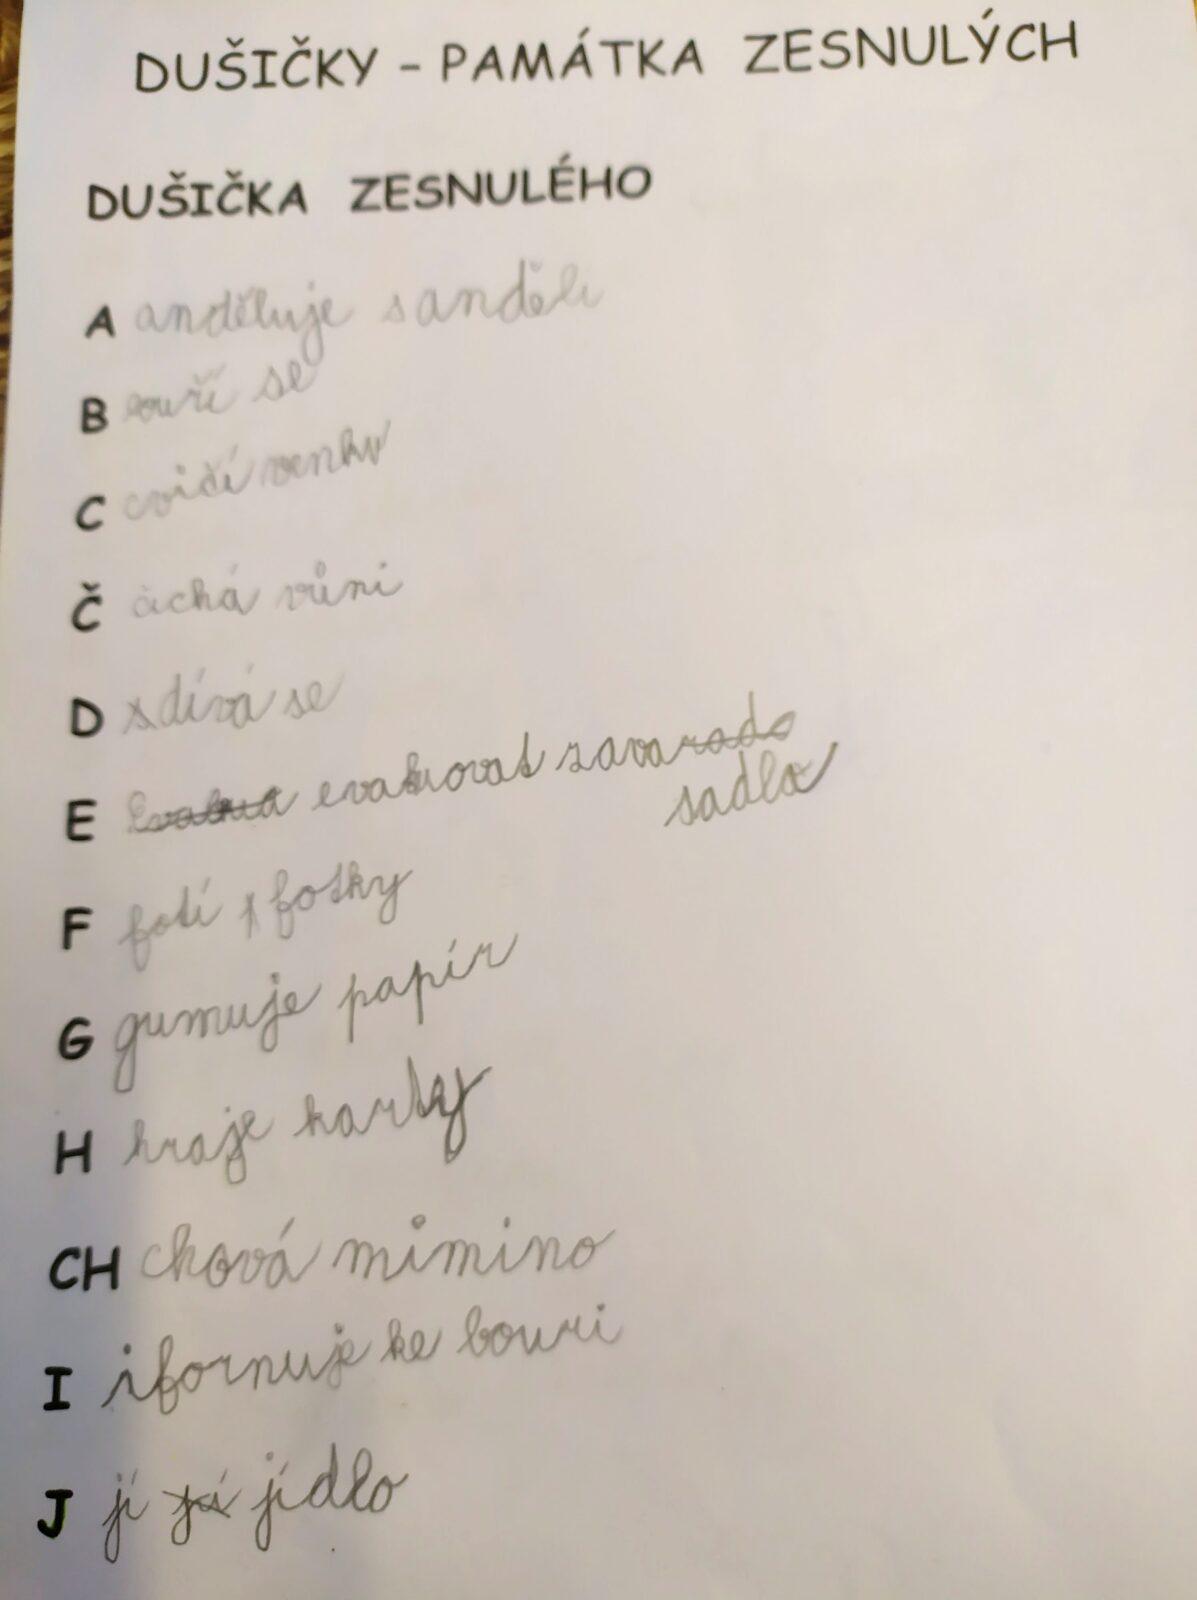 DUŠIČKY - PAMÁTKA ZESNULÝCH
DUŠIČKA ZESNULÉHO
A anděluje s anděli
B bouří se
C cvičí venku
Č čichá vůni
D dívá se
E evakuovat
sadlo
F fotí fotky
G gumuje papír
H hraje karty
CH chová mimino
I ifornuje ke bouri
J jí jídlo